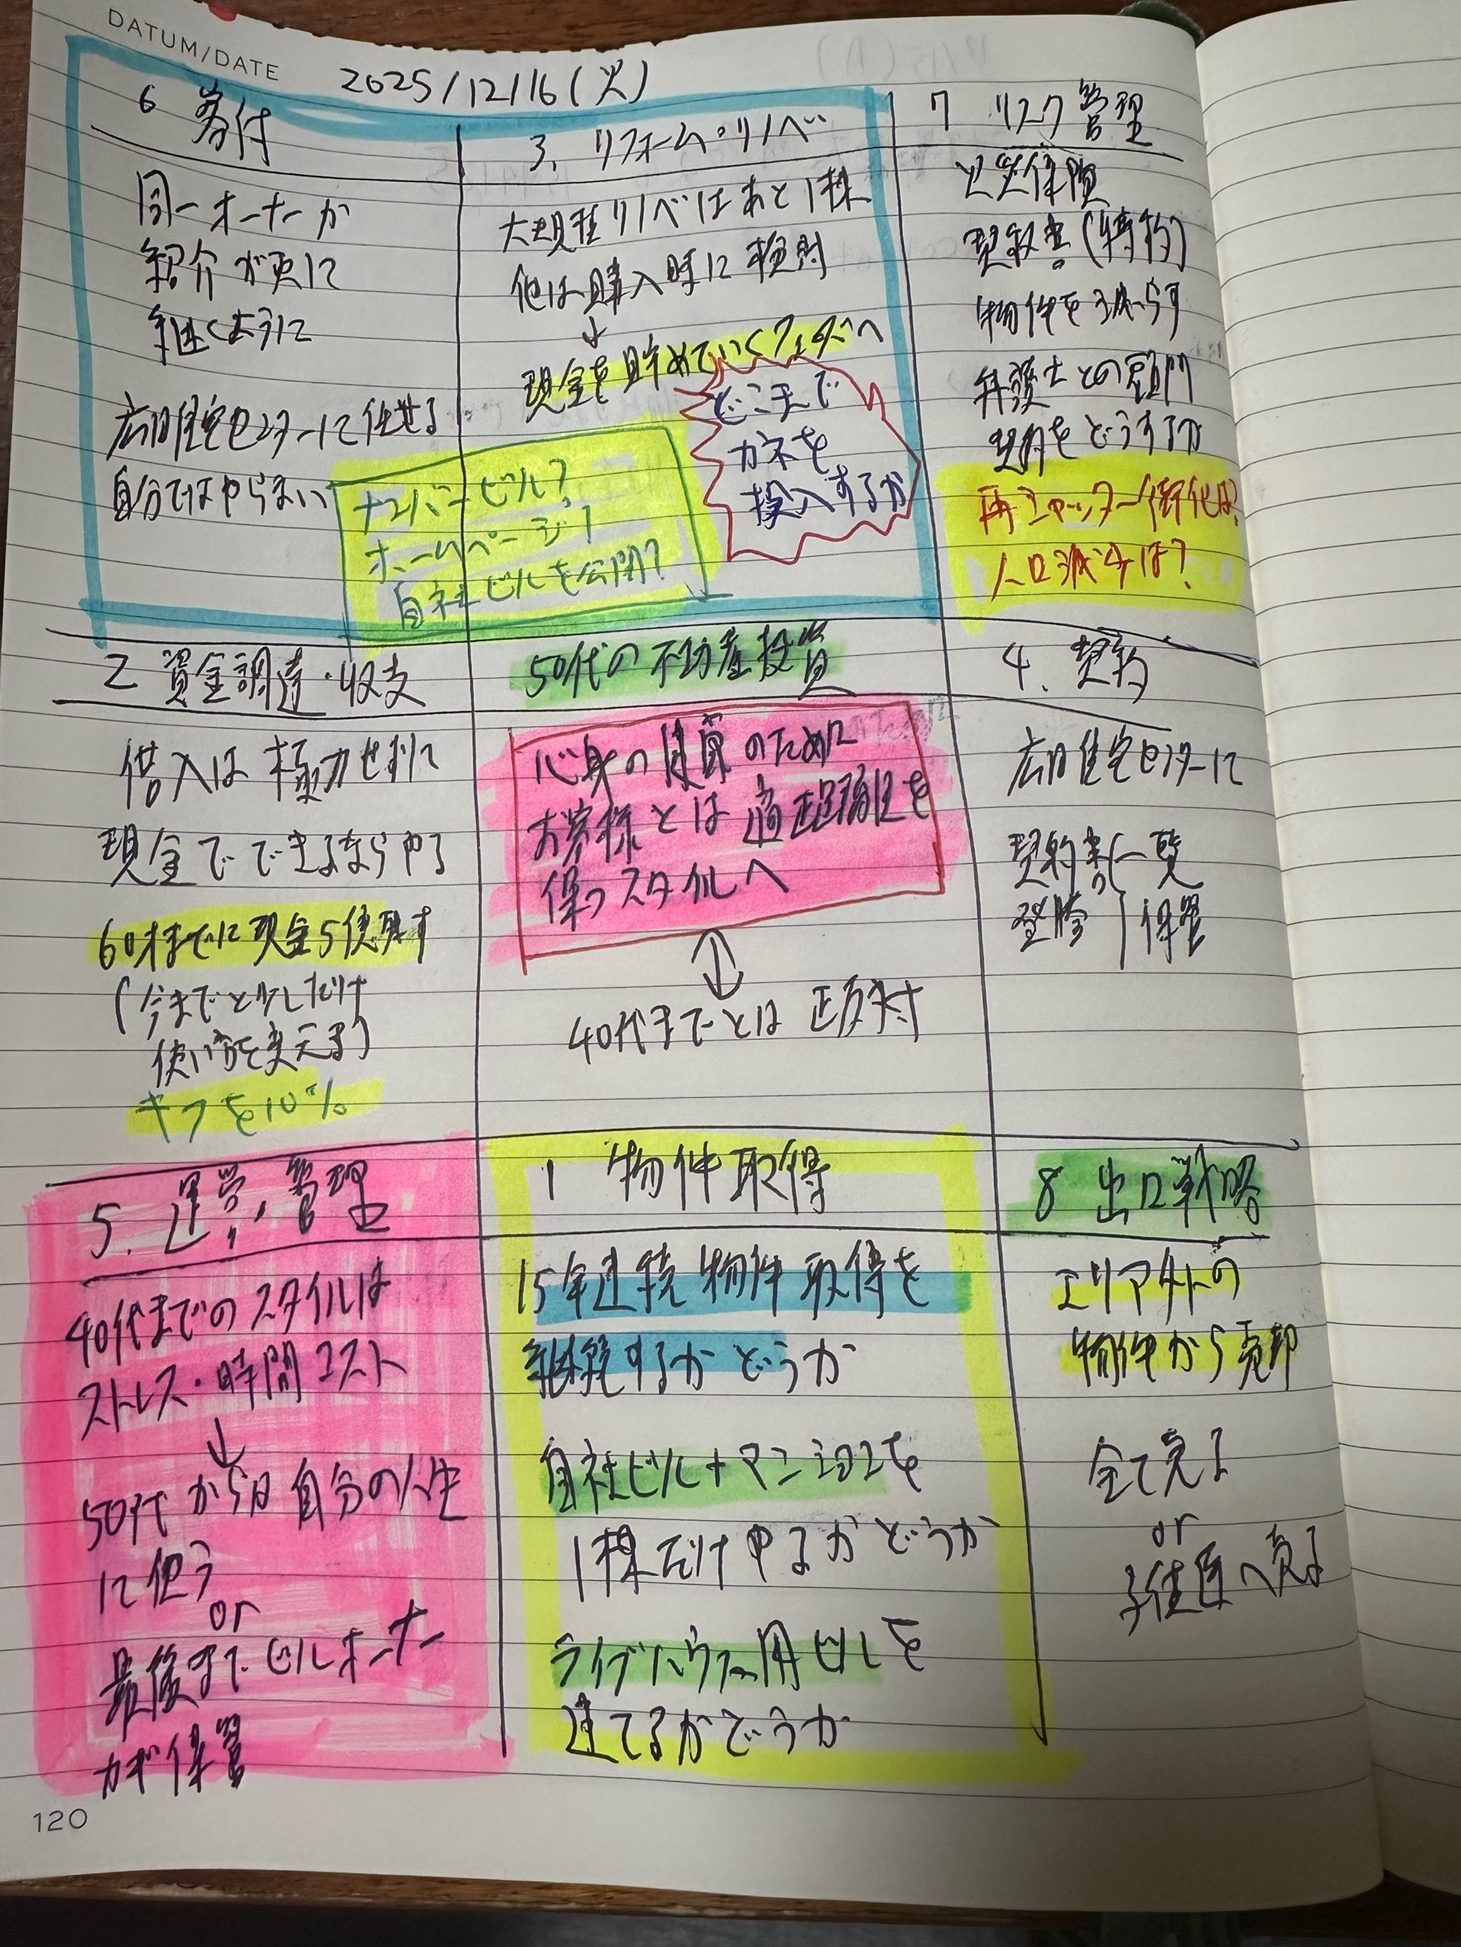 DATUM/DATE
2025/12/16(火)
6 客付
同一オーナーか
紹介が更に
続くように
広田住宅センターに任せる
自分ではやらない
ナンバービル?
ホームページ?
自社ビルを公開?
3. リフォーム・リノベ
大規模リノベはあと1棟
他は購入時に検討
↓
現金を貯めていくフェーズへ
どこまで
カネを
投入するか
7 リスク管理
火災保険
契約書(特約)
物件を減らす
弁護士との顧問
契約をどうするか
再シャッター街化は?
人口減少は?
2 資金調達・収支
借入は極力せずに
現金でできるならやる
60才までに現金5億残す
(今までと少しだけ
使い方を変える)
キフを10%
50代の不動産投資
心身の健康のために
お客様とは適正距離を
保つスタイルへ
40代までとは正反対
4. 契約
広田住宅センターに
契約書一覧
登騰 保管
5. 運営・管理
40代までのスタイルは
ストレス・時間コスト
↓
50代からは自分の人生
に使う
or
最後までビルオーナー
カギ保管
1 物件取得
15年連続物件取得を
継続するかどうか
自社ビル+マンションを
1棟だけやるかどうか
ライブハウス用ビルを
建てるかどうか
8 出口戦略
エリア外の
物件から売却
全て売る
or
子供へ売る
120